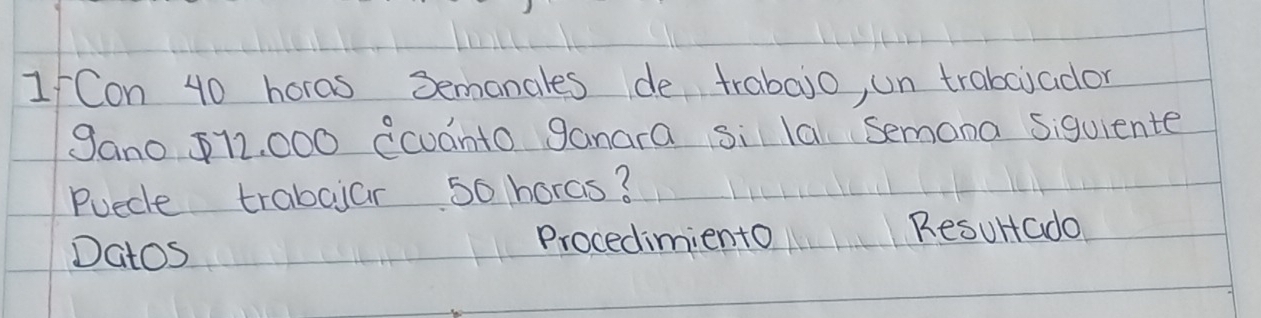 1- Con 40 horas semanales de trabajo, un trabajador
gano $12.000 ¿cuánto ganara si la semana siguiente
puede trabajar 50 horas?
Datos Procedimiento Resultado